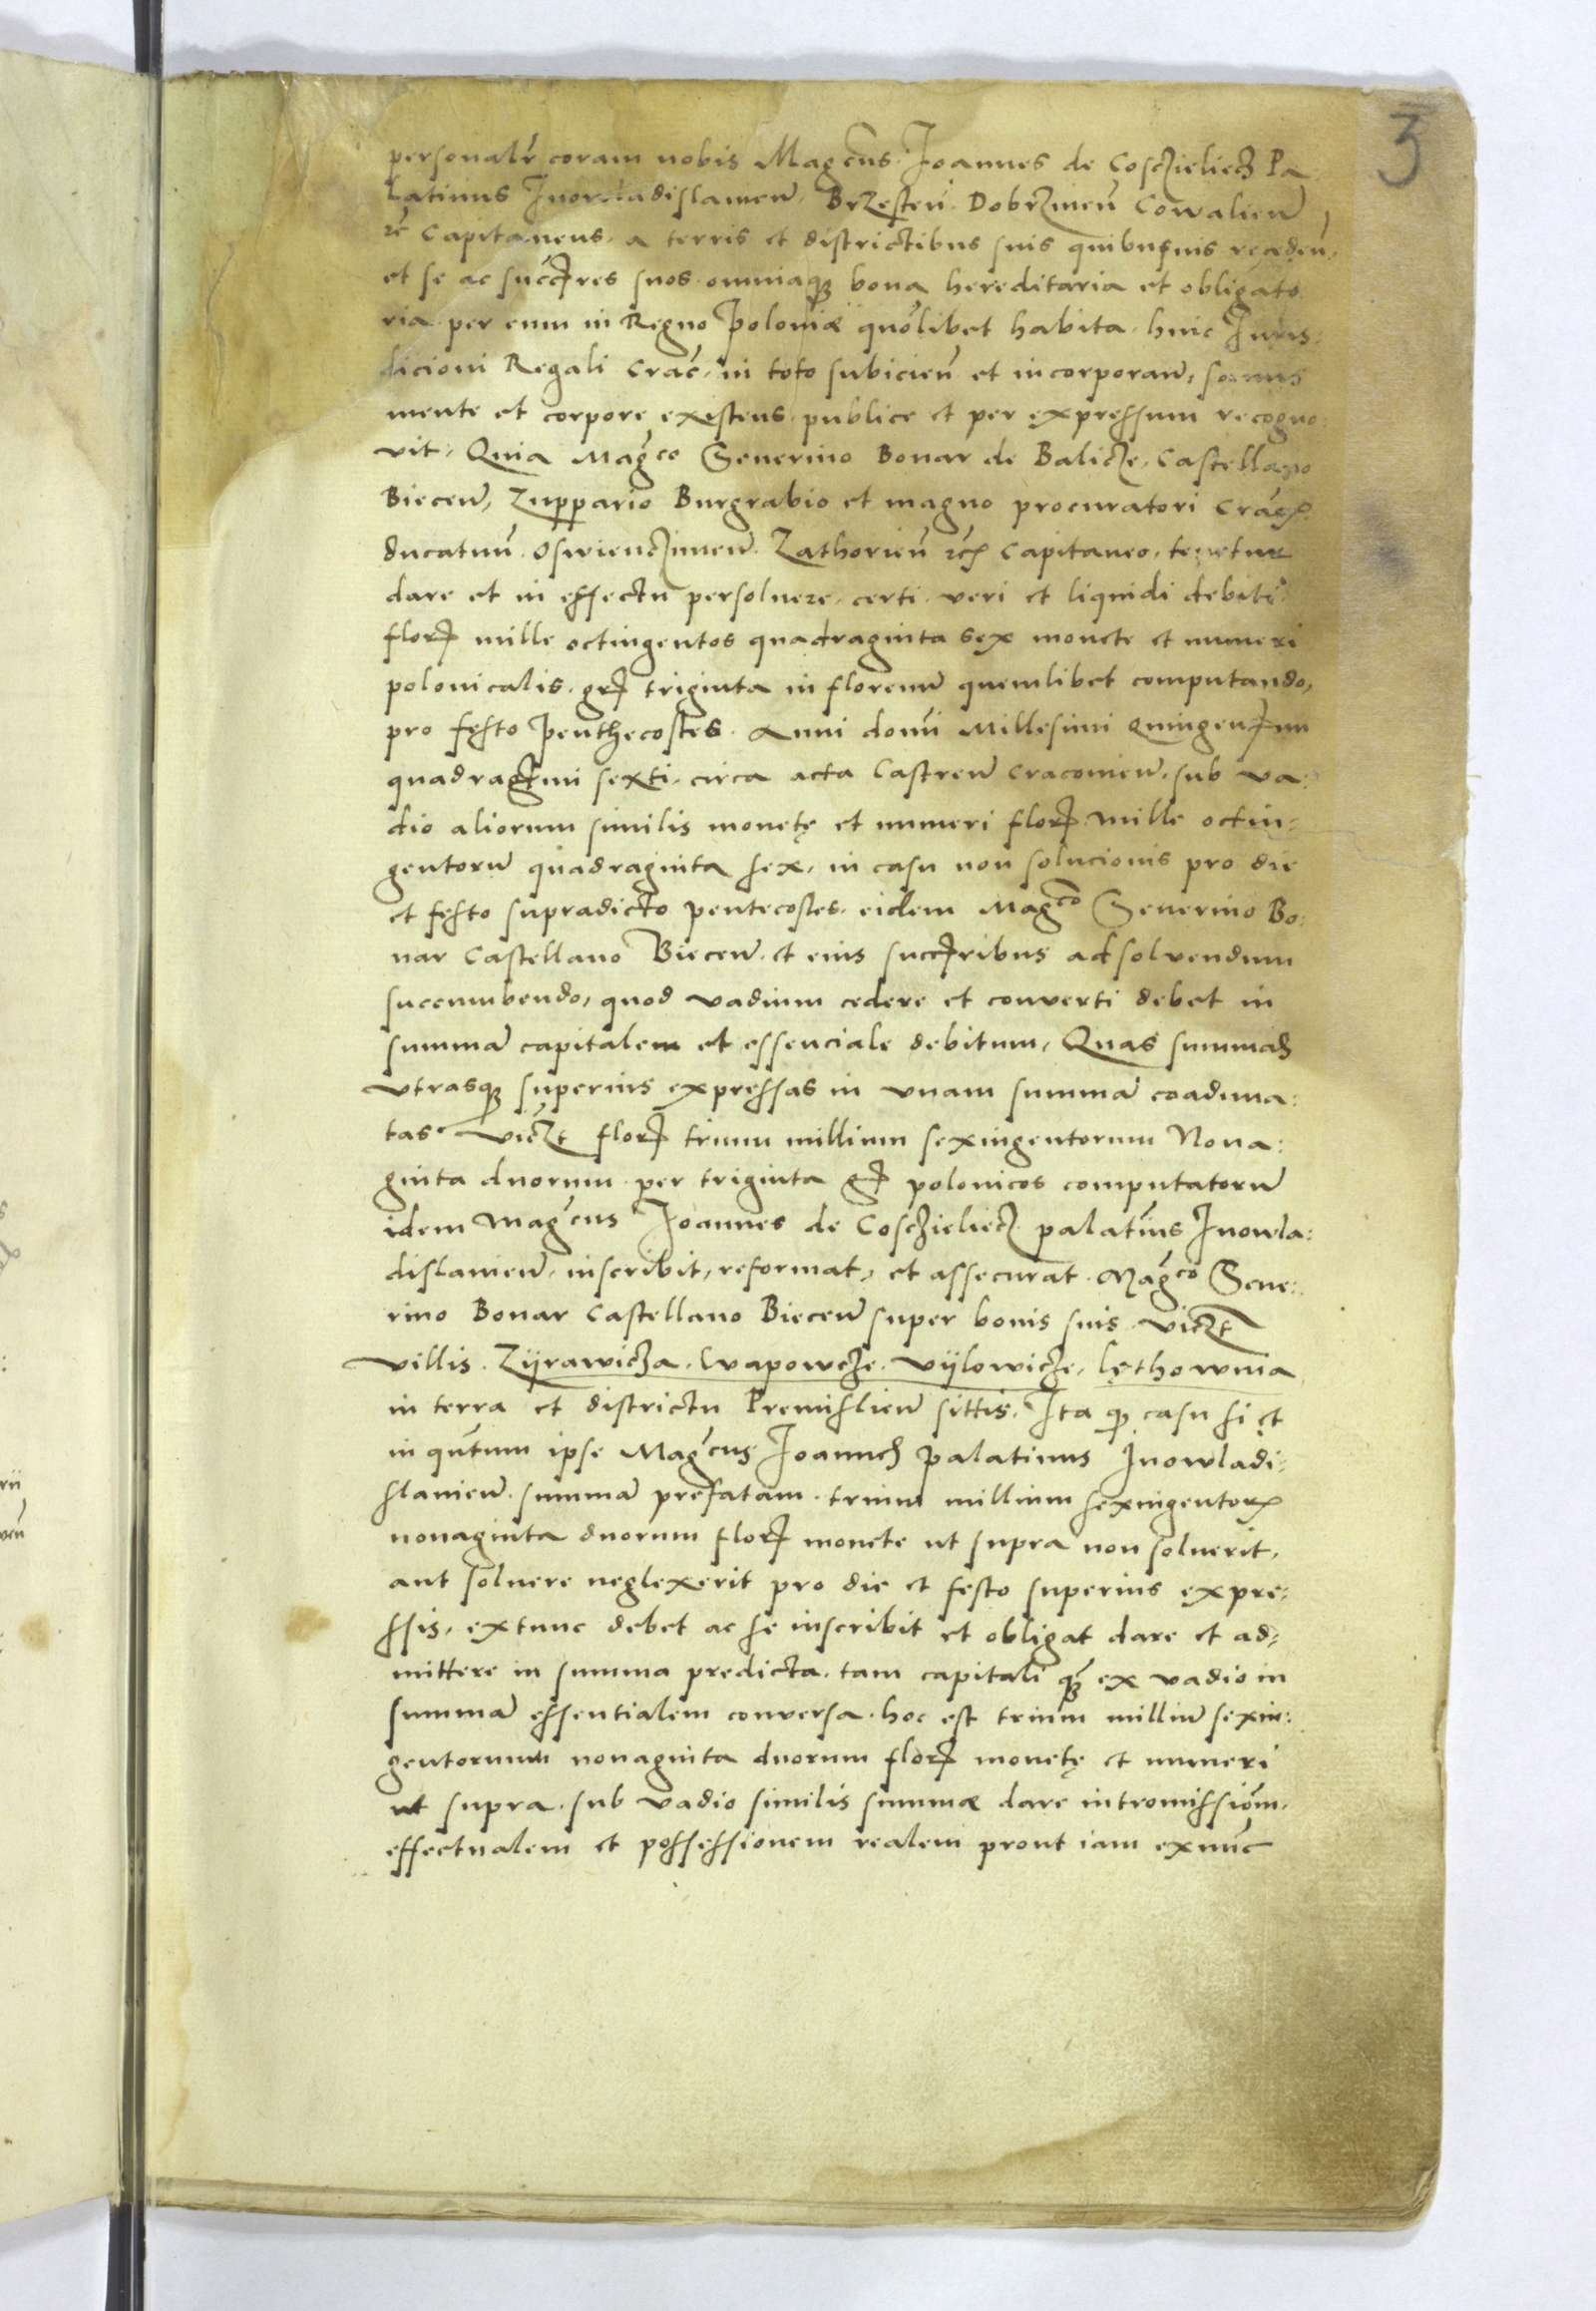 3
personalr coram nobis Magcus Joannes de Cosczieliecz Pa
latinus Inowladislavien̄ Brzesten̄ Dobrzinen̄ Cowalien̄
rc̄ Capitaneus a terris et districtibus suis quibusvis receden̄
et se ac succres suos omniaq̨ bona hereditaria et obligato
ria per eum in Regno Poloniæ quōlibet habita huic Juris
dicioni Regali Crac̄ in toto subicien̄ et incorporan̄, sanus
mente et corpore existens publice et per expressum recogno
vit, Quia Magco Severino Bonar de Balicze, Castellano
Biecen̄, Zuppario Burgrabio et magno procuratori Crac̄
ducatuū Oswienczimen̄ Zathorien̄ rc̄ Capitaneo, tenetur
dare et in effectu persolvere certi veri et liquidi debiti
flor mille octingentos quadraginta sex monete et numeri
polonicalis gr triginta in florenū quemlibet computando,
pro festo Penthecostes Anni domī Millesimi Quingenmi
quadragmi sexti, circa acta Castren̄ Cracovien̄, sub va
dio aliorum similis monetę et numeri flor mille octin:
gentorū quadraginta sex, in casu non solucionis pro die
et festo supradicto pentecostes, eidem Magco Severino Bo:
nar Castellano Biecen̄ et eius succribus ad solvendum
succumbendo, quod vadium cedere et converti debet in
summā capitalem et essenciale debitum, Quas summas
vtrasq̨ superius expressas in vnam summā coaduna:
tas viczt flor trium millium sexingentorum Nona:
ginta duorum per triginta gr polonicos computatorū
idem Magcus Joannes de Cosczieliecz palatīus Inowla:
dislavien̄, inscribit, reformat, et assecurat Magco Seve:
rino Bonar Castellano Biecen̄ super bonis suis viczt
villis Zÿrawicza, Wapowcze Vÿlowicze, Lęthownia
in terra et districtu Premislien̄ sittis, Ita q̨ casu si et
in quntum ipse Magcus Joannes Palatinus Inowladi:
slavien̄ summā prefatam trium millium sexingentor
nonaginta duorum flor monete ut supra non solverit,
aut solvere neglexerit pro die et festo superius expre:
ssis, extunc debet ac se inscribit et obligat dare et ad,
mittere in summa predicta, tam capitali q̨ ex vadio in
summā essentialem conversa, hoc est trium milliū sexin:
gentorumm nonaginta duorum flor monetę et numeri
ut supra, sub vadio similis summæ dare intromissiōm,
effectualem et possessionem realem prout iam exnūc